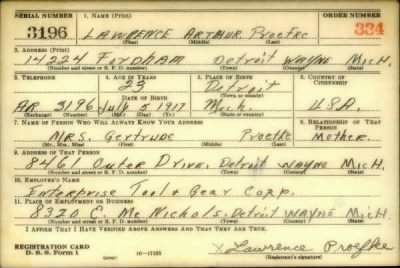 SERIAL NUMBER 1. NAME (Print) ORDER NUMBER
3196 LAWRENCE ARTHUR Proefke 334
(First) (Middle) (Last)
2. ADDRESS (Print)
14224 Fordham Detroit Wayne Mich.
(Number and street or R. F. D. number) (Town) (County) (State)
3. TELEPHONE 4. AGE IN YEARS 5. PLACE OF BIRTH 6. COUNTRY OF CITIZENSHIP
23 Detroit
DATE OF BIRTH (Town or county)
AR 3196 July 5, 1917 Mich. U.S.A.
(Exchange) (Number) (Mo.) (Day) (Yr.) (State or country)
7. NAME OF PERSON WHO WILL ALWAYS KNOW YOUR ADDRESS 8. RELATIONSHIP OF THAT PERSON
MRS. Gertrude Proefke Mother.
(Mr., Mrs., Miss) (First) (Middle) (Last)
9. ADDRESS OF THAT PERSON
8461 Outer Drive, Detroit Wayne MicH.
(Number and street or R. F. D. number) (Town) (County) (State)
10. EMPLOYER'S NAME
Enterprise Tool & Gear Corp.
11. PLACE OF EMPLOYMENT OR BUSINESS
8320 E. McNichols, Detroit WAYNE MicH.
(Number and street or R. F. D. number) (Town) (County) (State)
I AFFIRM THAT I HAVE VERIFIED ABOVE ANSWERS AND THAT THEY ARE TRUE.
REGISTRATION CARD
D. S. S. Form 1 (over) 16—17105 x Lawrence Proefke
(Registrant's signature)